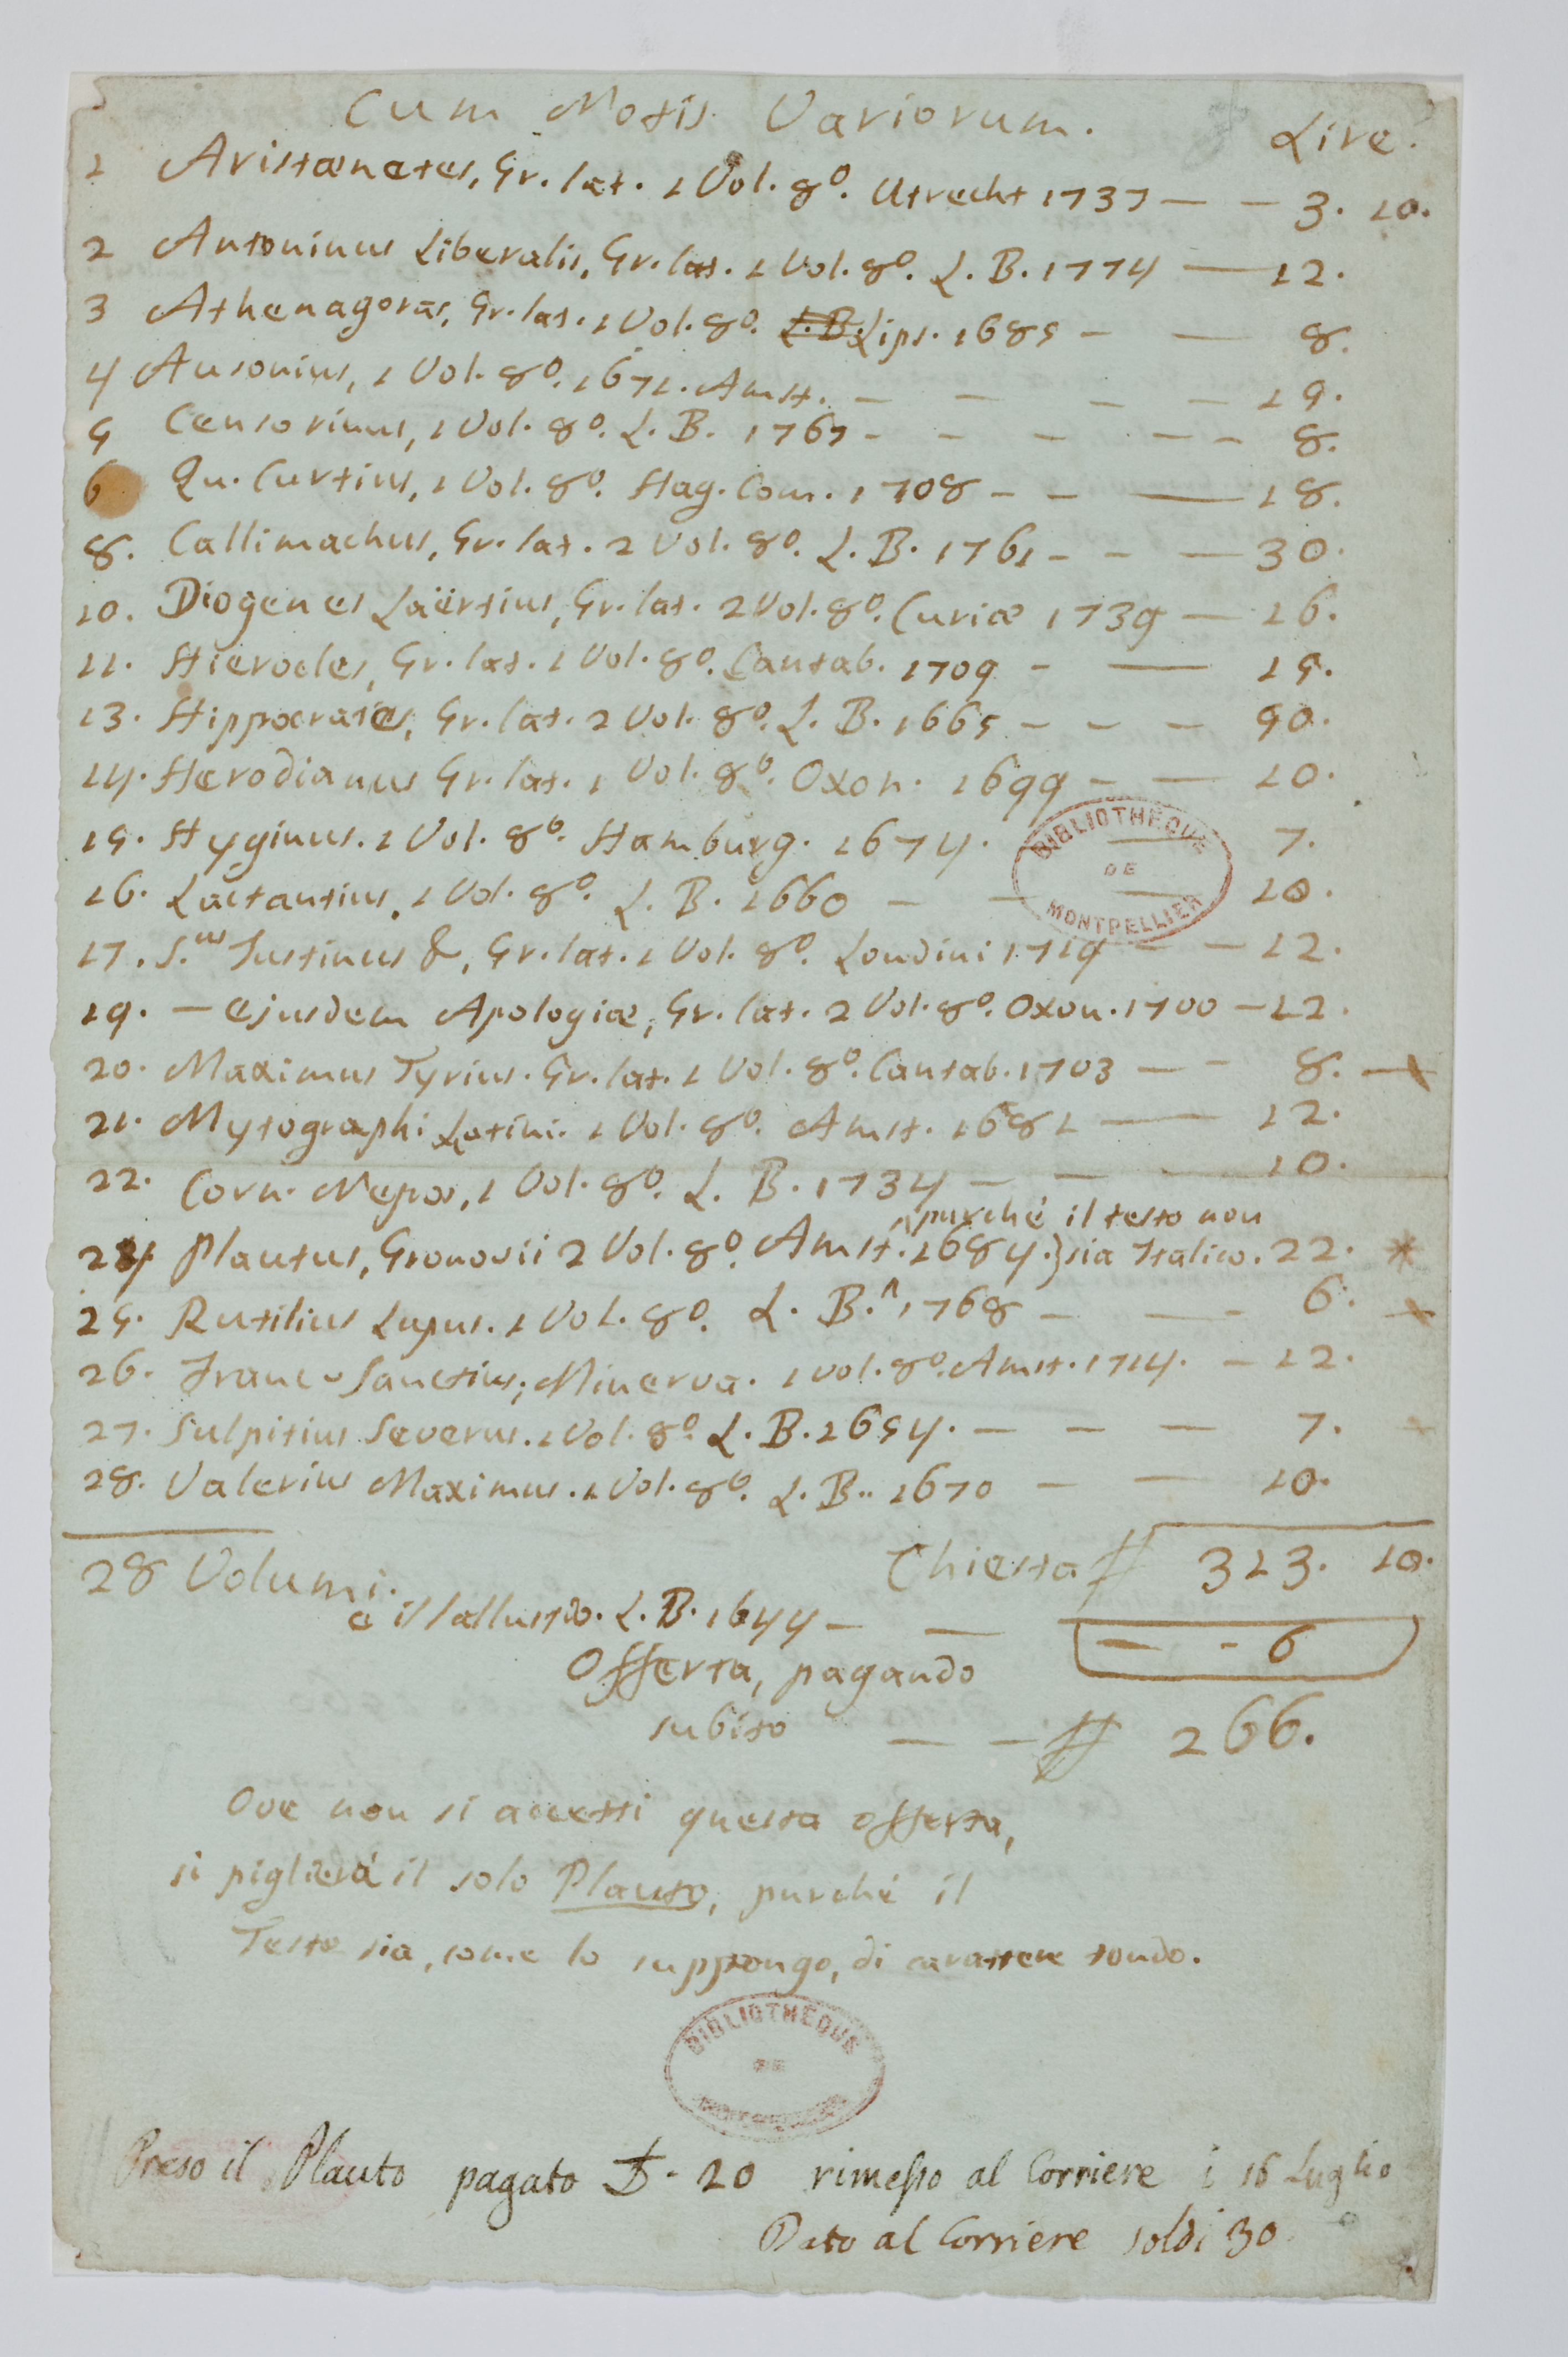 Cum Notis Variorum. Lire.
1 Aristænetes, Gr. lat. 1 Vol. 8º. Utrecht 1737 — — 3. 10.
2 Antoninus Liberalis, Gr. lat. 1 Vol. 8º. L. B. 1774 — 12.
3 Athenagoras, Gr. lat. 1 Vol. 8º. L. B. Lips. 1685 — — 8.
4 Ausonius, 1 Vol. 8º. 1671. Amst. — — — — 15.
5 Censorinus, 1 Vol. 8º. L. B. 1767 - - - - - 8.
6 Qu. Curtius, 1 Vol. 8º. Hag. Com. 1708 - - — 18.
8. Callimachus, Gr. lat. 2 Vol. 8º. L. B. 1761 - - — 30.
10. Diogenes Laërtius, Gr. lat. 2 Vol. 8º. Curiæ 1739 — 16.
11. Hierocles, Gr. lat. 1 Vol. 8º. Cantab. 1709 - — 15.
13. Hippocrates, Gr. lat. 2 Vol. 8º. L. B. 1665 - - - 50.
14. Herodianus Gr. lat. 1 Vol. 8º. Oxon. 1699 - — 10.
15. Hyginus. 1 Vol. 8º. Hamburg. 1674. — 7.
16. Lactantius, 1 Vol. 8º. L. B. 1660 - - — 10.
17. S.us Justinus &, Gr. lat. 1 Vol. 8º. Londini 1719 - - 12.
19. — Ejusdem Apologiæ, Gr. lat. 2 Vol. 8º. Oxon. 1700 — 12.
20. Maximus Tyrius. Gr. lat. 1 Vol. 8º. Cantab. 1703 — - 8. +
21. Mytographi Latini. 1 Vol. 8º. Amst. 1681 — 12.
22. Corn. Nepos, 1 Vol. 8º. L. B. 1734 — — — 10.
purché il testo non
24 Plautus, Gronovii 2 Vol. 8º. Amst. 1684. } sia Italico. 22. *
25. Rutilius Lupus. 1 Vol. 8º. L. B. 1768 — — - 6. +
26. Franc. Sanctius, Minerva. 1 vol. 8º. Amst. 1714. — 12.
27. Sulpitius Severus. 1 Vol. 8º. L. B. 1654. — — — 7.
28. Valerius Maximus. 1 Vol. 8º. L. B. 1670 — — 10.
28 Volumi. Chiesta # 313. 10.
e il Sallustio. L. B. 1644 — — — - 6
Offerta, pagando
subito — — # 266.
Ove non si accetti questa offerta,
si piglierà il solo Plauto, purché il
Testo sia, come lo suppongo, di carattere tondo.
Preso il Plauto pagato £ - 20 rimesso al Corriere i 16 Luglio
Dato al Corriere soldi 30
BIBLIOTHEQUE DE MONTPELLIER
BIBLIOTHEQUE DE MONTPELLIER